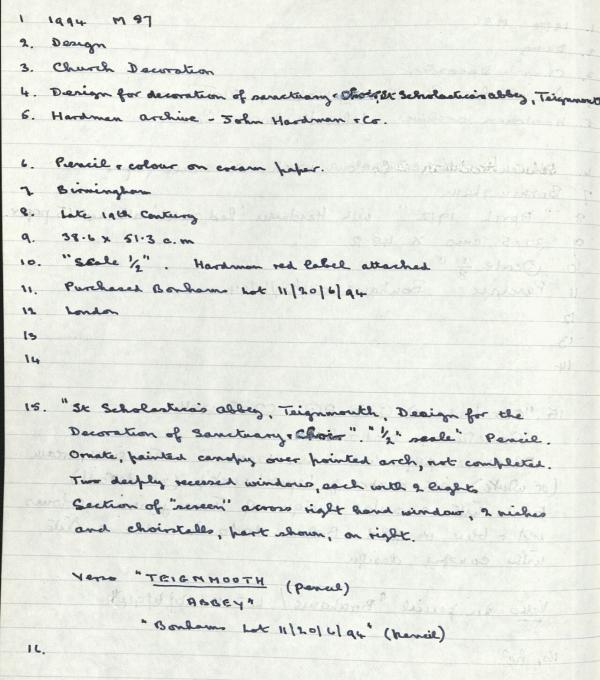 1 1994 M 87
2. Design
3. Church Decoration
4. Design for decoration of sanctuary + Choir, St Scholastica's abbey, Teignmout
5. Hardman archive - John Hardman + Co.
6. Pencil + colour on cream paper.
7. Birmingham
8. Late 19th Century
9. 38.6 x 51.3 c.m
10. "scale 1/2". Hardman red label attached
11. Purchased Bonhams Lot 11/20/6/94
12 London
13
14
15. "St Scholastica's abbey, Teignmouth, Design for the
Decoration of Sanctuary + Choir" "1/2" scale" Pencil.
Ornate, painted canopy over pointed arch, not completed.
Two deeply recessed windows, each with 2 lights
Section of "screen" across right hand window, 2 niches
and choirstalls, part shown, on right.
Verso "TEIGNMOOTH (pencil)
ABBEY"
"Bonhams Lot 11/20/6/94" (pencil)
16.